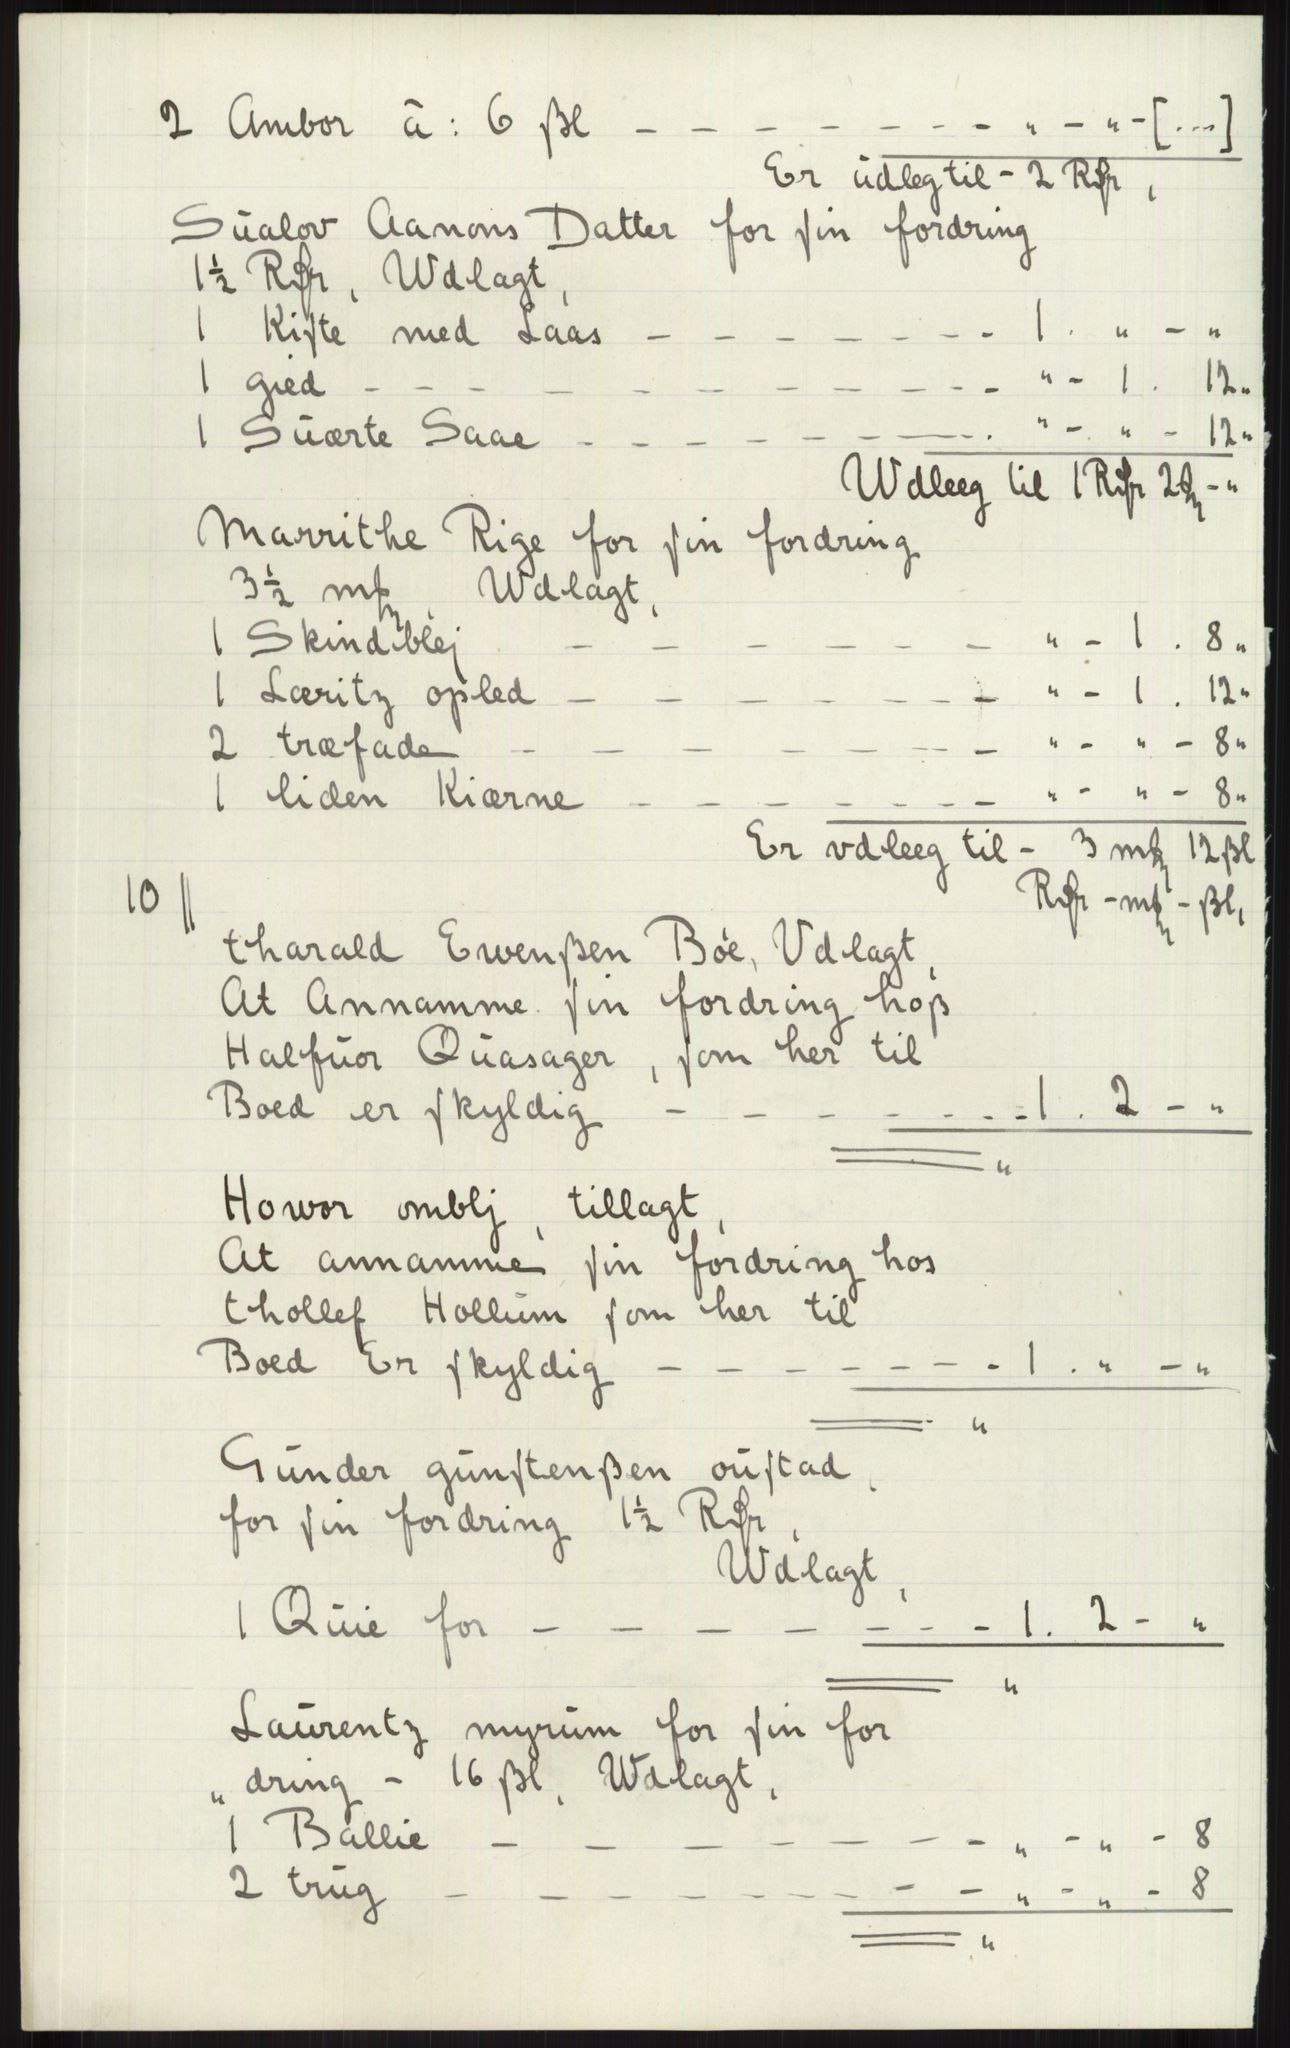 2 Ambor ā: 6 ßl - - - - - - - - - „ - „ - [...]
Er ūdleg til - 2 Rdr,
Sūalov Aanons Datter for sin fordring
1½ Rdr, Wdlagt,
1 Kiste med Laas - - - - - - - 1 . „ - „
1 gied - - - - - - - - - - - „ - 1 . 12„
1 Sūærte Saae - - - - - - - . „ - „ - 12„
Wdleeg til 1 Rdr 2 mk - „
Marrithe Rige for sin fordring
3½ mk, Wdlagt,
1 Skindblej - - - - - - - „ - 1 . 8„
1 Læritz opled - - - - - - - „ - 1 . 12„
2 træfade - - - - - - - - „ - „ - 8„
1 liden Kiærne - - - - - - - „ - „ - 8„
Er vdleeg til - 3 mk 12 ßl
Rdr - mk - ßl,
10 ||
tharald Ewenßen Böe, Vdlagt,
At Annamme sin fordring hoß
Halfūor Qūasager, som her til
Boed er skyldig - - - - - - - 1 . 2 - „
„
Howor omblj, tillagt,
At annamme sin fordring hos
thollef Hollūm som her til
Boed Er skyldig - - - - - - - 1 . „ - „
„
Gūnder gūnstenßen oūstad,
for sin fordring 1½ Rdr,
Wdlagt,
1 Qūie for - - - - - - - 1 . 2 - „
„
Laūrentz myrūm for sin for
„dring - 16 ßl, Wdlagt,
1 Ballie - - - - - - - „ - „ - 8
2 trūg - - - - - - - - - „ - „ - 8
„